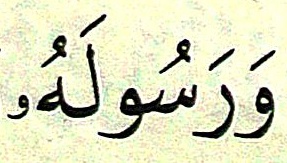 وَرَسُولَهُۥ